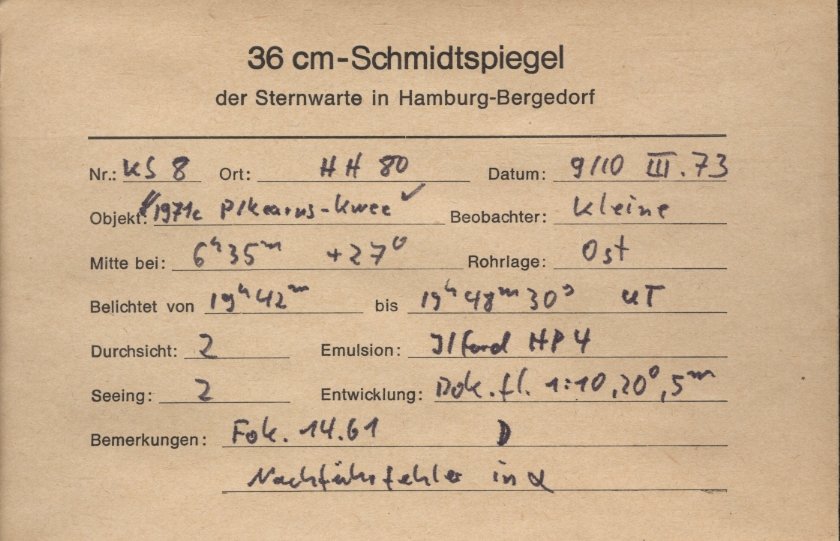 36 cm-Schmidtspiegel
der Sternwarte in Hamburg-Bergedorf
Nr.: KS 8 Ort: HH 80 Datum: 9/10 III. 73
Objekt: 1971c P/Kearns-Kwee ✓ Beobachter: Kleine
Mitte bei: 6ʰ35ᵐ +27° Rohrlage: Ost
Belichtet von 19ʰ42ᵐ bis 19ʰ48ᵐ30ˢ UT
Durchsicht: 2 Emulsion: Ilford HP4
Seeing: 2 Entwicklung: Dok. fl. 1:10, 20°, 5ᵐ
Bemerkungen: Fok. 14.61
Nachführfehler in α